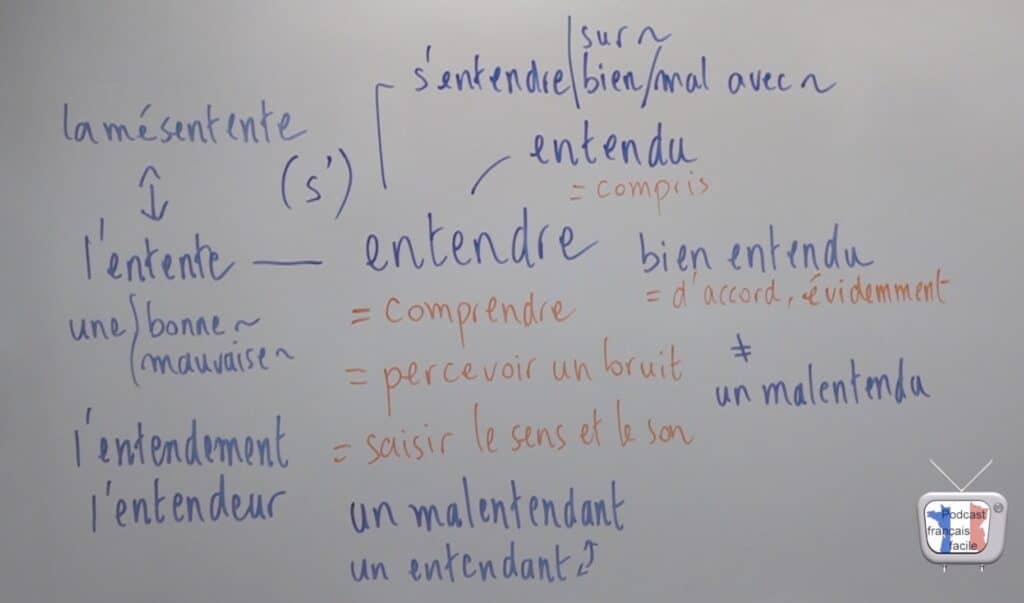 s'entendre sur ~
bien/mal avec ~
la mésentente
(s')
entendu
= compris
l'entente — entendre
bien entendu
= d'accord, évidemment
une bonne ~
mauvaise ~
= comprendre
= percevoir un bruit
≠
un malentendu
l'entendement
= saisir le sens et le son
l'entendeur
un malentendant
un entendant
Podcast
français
facile